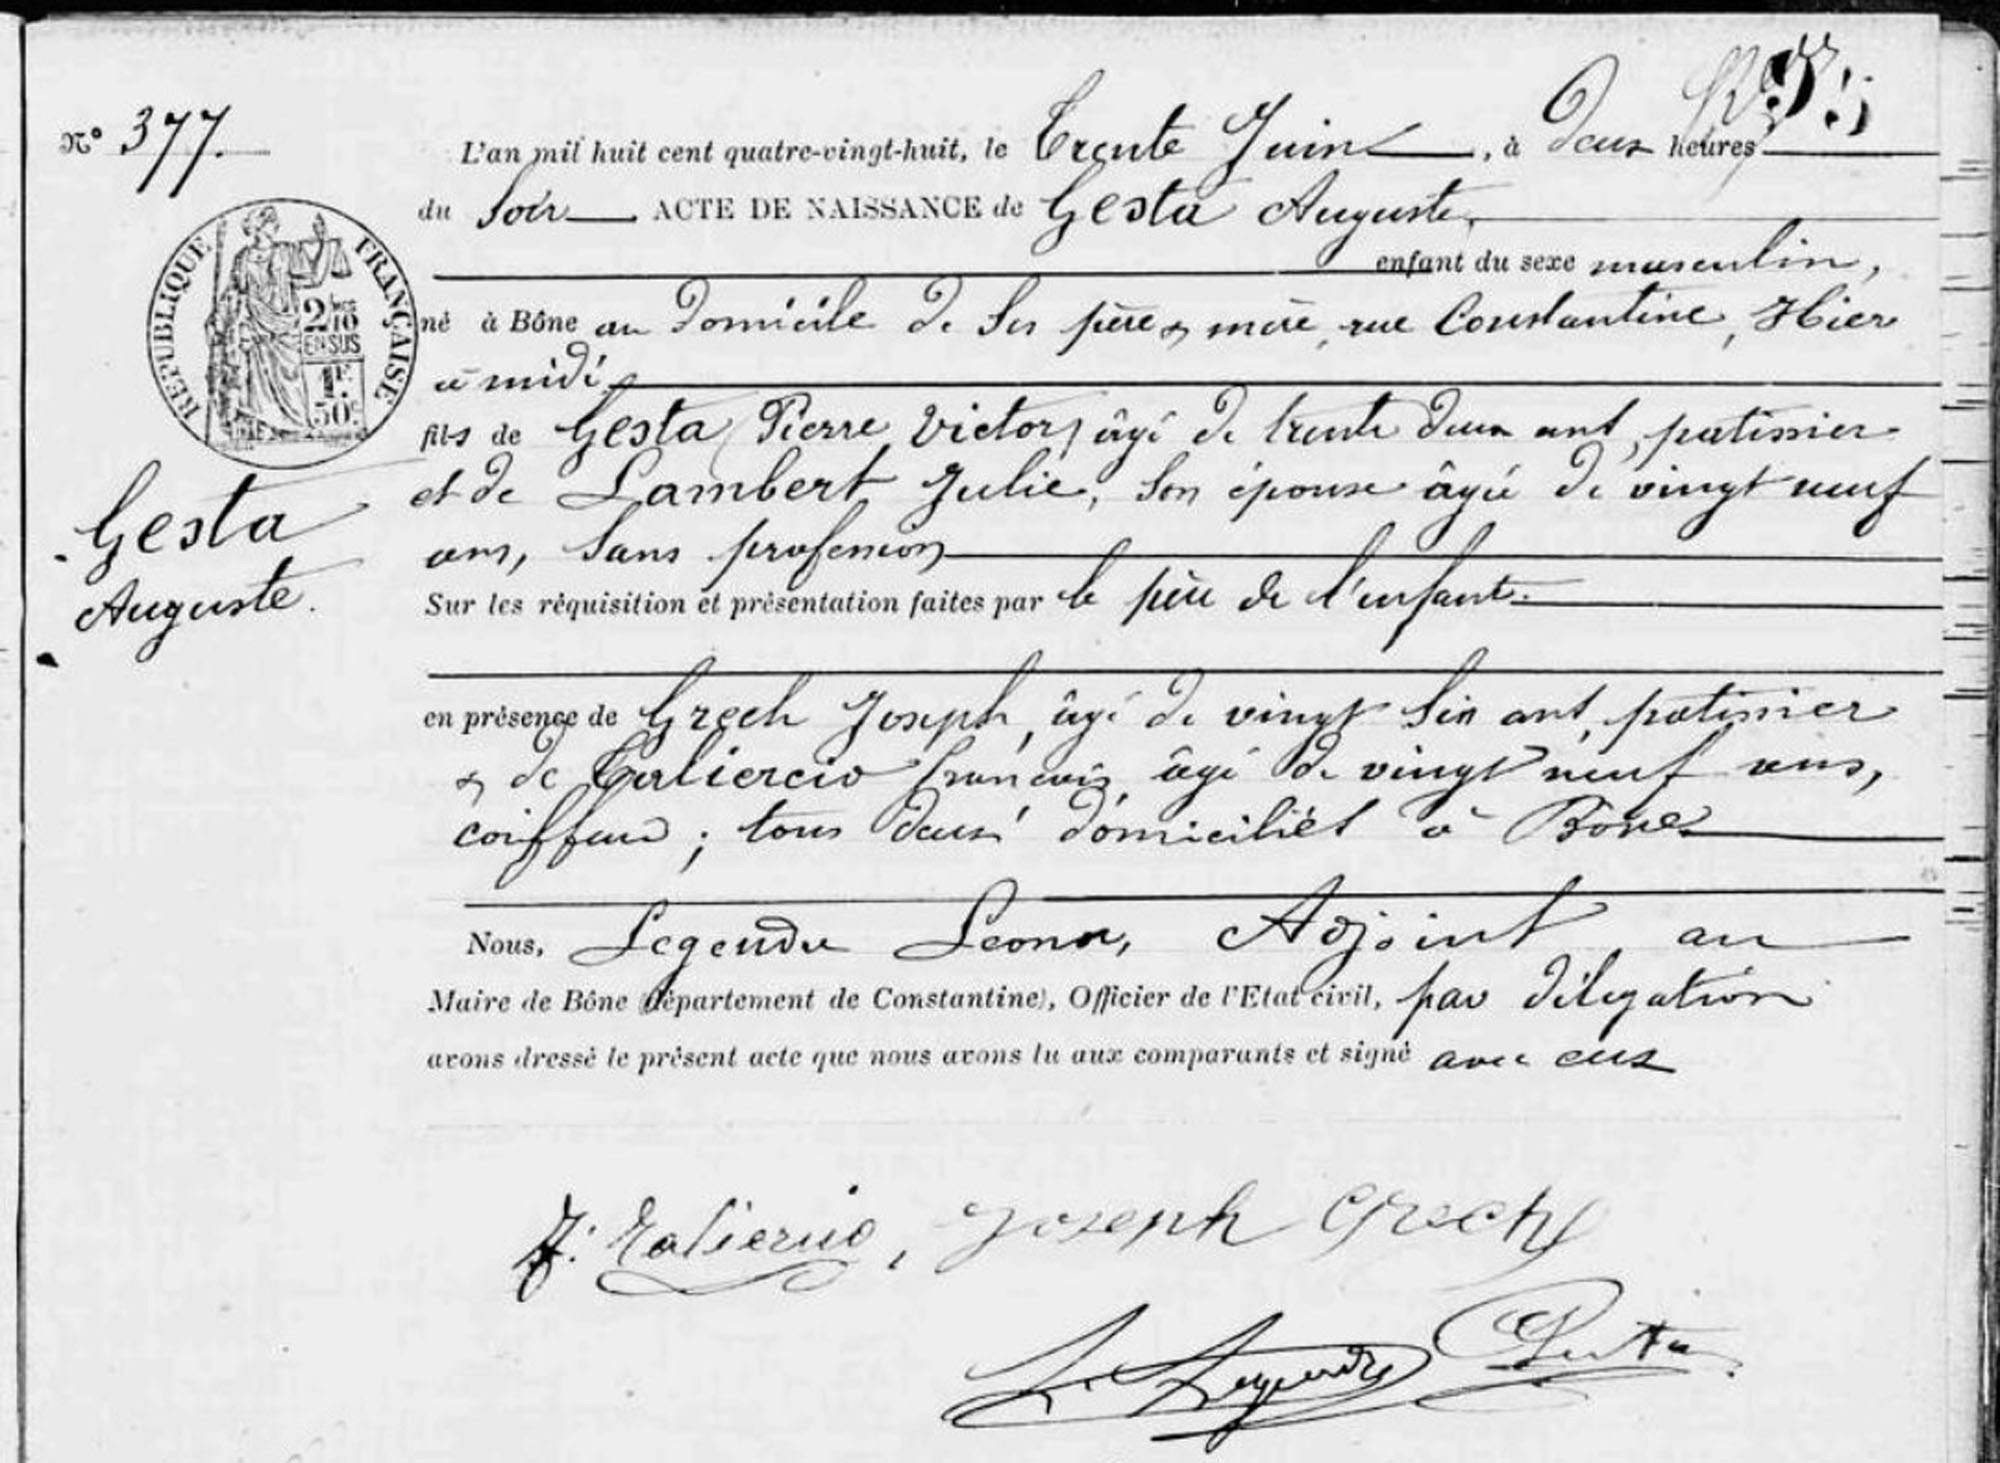 N° 377.
L'an mil huit cent quatre-vingt-huit, le Trente Juin, à Deux heures
du Soir ACTE DE NAISSANCE de Gesta Auguste,
enfant du sexe masculin,
né à Bône au domicile de ses père & mère, rue Constantine, Hier
à midi
fils de Gesta (Pierre Victor) âgé de trente deux ans, patissier
et de Lambert Julie, son épouse âgée de vingt neuf
ans, sans profession
Sur les réquisition et présentation faites par le père de l'enfant.
en présence de Grech Joseph, âgé de vingt six ans, patissier
& de Taliercio françois, âgé de vingt neuf ans,
coiffeur ; tous deux domiciliés à Bône
Nous, Legendre Leonor, Adjoint au
Maire de Bône (département de Constantine), Officier de l'Etat civil, par délégation
avons dressé le présent acte que nous avons lu aux comparants et signé avec eux
RÉPUBLIQUE FRANÇAISE
2/10
EN SUS
1F.
50c
Gesta
Auguste.
F. Taliercio, Joseph Grech
L. Legendre Gesta